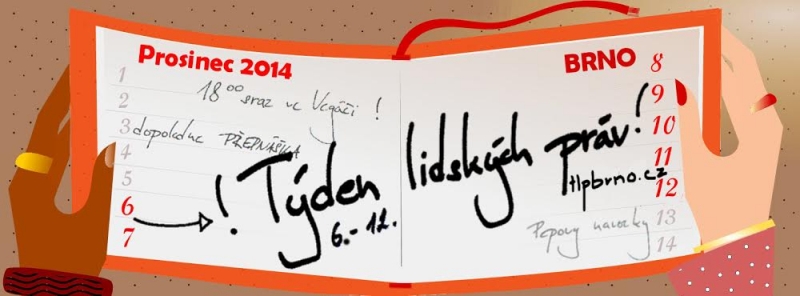 Prosinec 2014
1
2
18 00 sraz ve Vegáči !
3 dopoledne PŘEDNÁŠKA
4
5
6
7
! Týden lidských práv!
6.-12.
BRNO
8
9
10
11
tlpbrno.cz
12
13
14